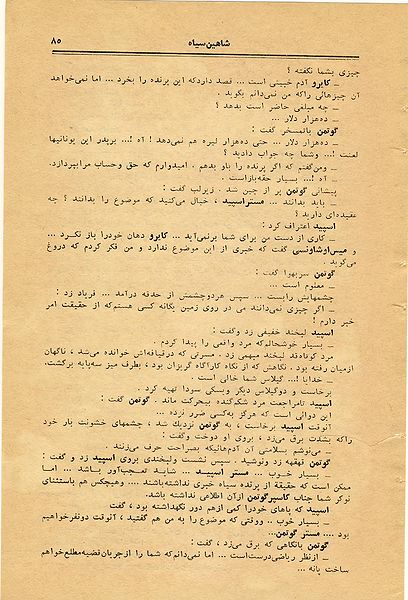 شاهین سیاه
۸۵
چیزی بشما نگفته ؟
ـ کایرو آدم خبیثی است ... قصد دارد که این پرنده را بخرد ... اما نمی‌خواهد
آن چیزهائی را که من نمی‌دانم بگوید .
ـ چه مبلغی حاضر است بدهد ؟
ـ ده‌هزار دلار ...
گوتمن باتمسخر گفت :
ـ ده‌هزار دلار ... حتی ده‌هزار لیره هم نمی‌دهد ! آه !... بر پدر این یونانیها
لعنت !... وشما چه جواب دادید ؟
ـ ومن‌گفتم که اگر پرنده را باو بدهم . امیدوارم که حق وحساب مرا بپردازد.
ـ آه !... بسیار حقه‌باز است .
پیشانی گوتمن پر از چین شد . زیرلب گفت :
ـ باید بدانند ... مستر اسپید ، خیال می‌کنید که موضوع را بدانند ؟ چه
عقیده‌ای دارید ؟
اسپید اعتراف کرد :
ـ کاری از دست من برای شما برنمی‌آید ... کایرو دهان خودرا باز نکرد ...
و میس اوشاونسی گفت که خبری از این موضوع ندارد و من فکر کردم که دروغ
می‌گوید .
گوتمن سربهوا گفت :
ـ معلوم است ...
چشمهایش رابست ... سپس هردوچشمش از حدقه درآمد ... فریاد زد :
ـ اگر چیزی نمی‌دانند من در روی زمین یگانه کسی هستم که از حقیقت امر
خبر دارم !
اسپید لبخند خفیفی زد وگفت :
ـ بسیار خوشحالم که مرد واقعی را پیدا کردم .
مرد کوتاه‌قد لبخند مبهمی زد . مسرتی که درقیافه‌اش خوانده می‌شد ، ناگهان
ازمیان رفته بود . نگاهش که از نگاه کارآگاه گریزان بود ، بطرف میز سه‌پایه برگشت.
ـ خدایا !... گیلاس شما خالی است .
برخاست و دوگیلاس دیگر ویسکی سودا تهیه کرد .
اسپید تامراجعت مرد بیحرکت ماند . گوتمن گفت :
این دوائی است که هرگز به‌کسی ضرر نزده ...
آنوقت اسپید برخاست ، به گوتمن نزدیک شد ، چشمهای خشونت بار خود
راکه بشدت برق می‌زد ، بروی او دوخت وگفت :
ـ می‌نوشم بسلامتی آن آدمهائیکه بصراحت حرف می‌زنند .
گوتمن قهقهه زد ونوشید . سپس نشست ولبخندی بروی اسپید زد و گفت :
ـ بسیار خوب ... مستر اسپید ... شاید تعجب‌آور باشد ... اما
ممکن است که حقیقه از پرنده سیاه خبری نداشته‌باشند .... وهیچکس هم باستثنای
نوکر شما جناب کاسپرگوتمن از آن اطلاعی نداشته باشد.
اسپید که پاهای خودرا کمی ازهم دور نگهداشته بود ، گفت
ـ بسیار خوب ... ووقتی که موضوع را به من هم گفتید ، آنوقت دونفر خواهیم
بود .... مستر گوتمن...
گوتمن بانگاهی که برق می‌زد ، گفت :
ـ از نظر ریاضی درست است ... اما نمی‌دانم که شما را از جریان قضیه مطلع خواهم
ساخت یانه ...